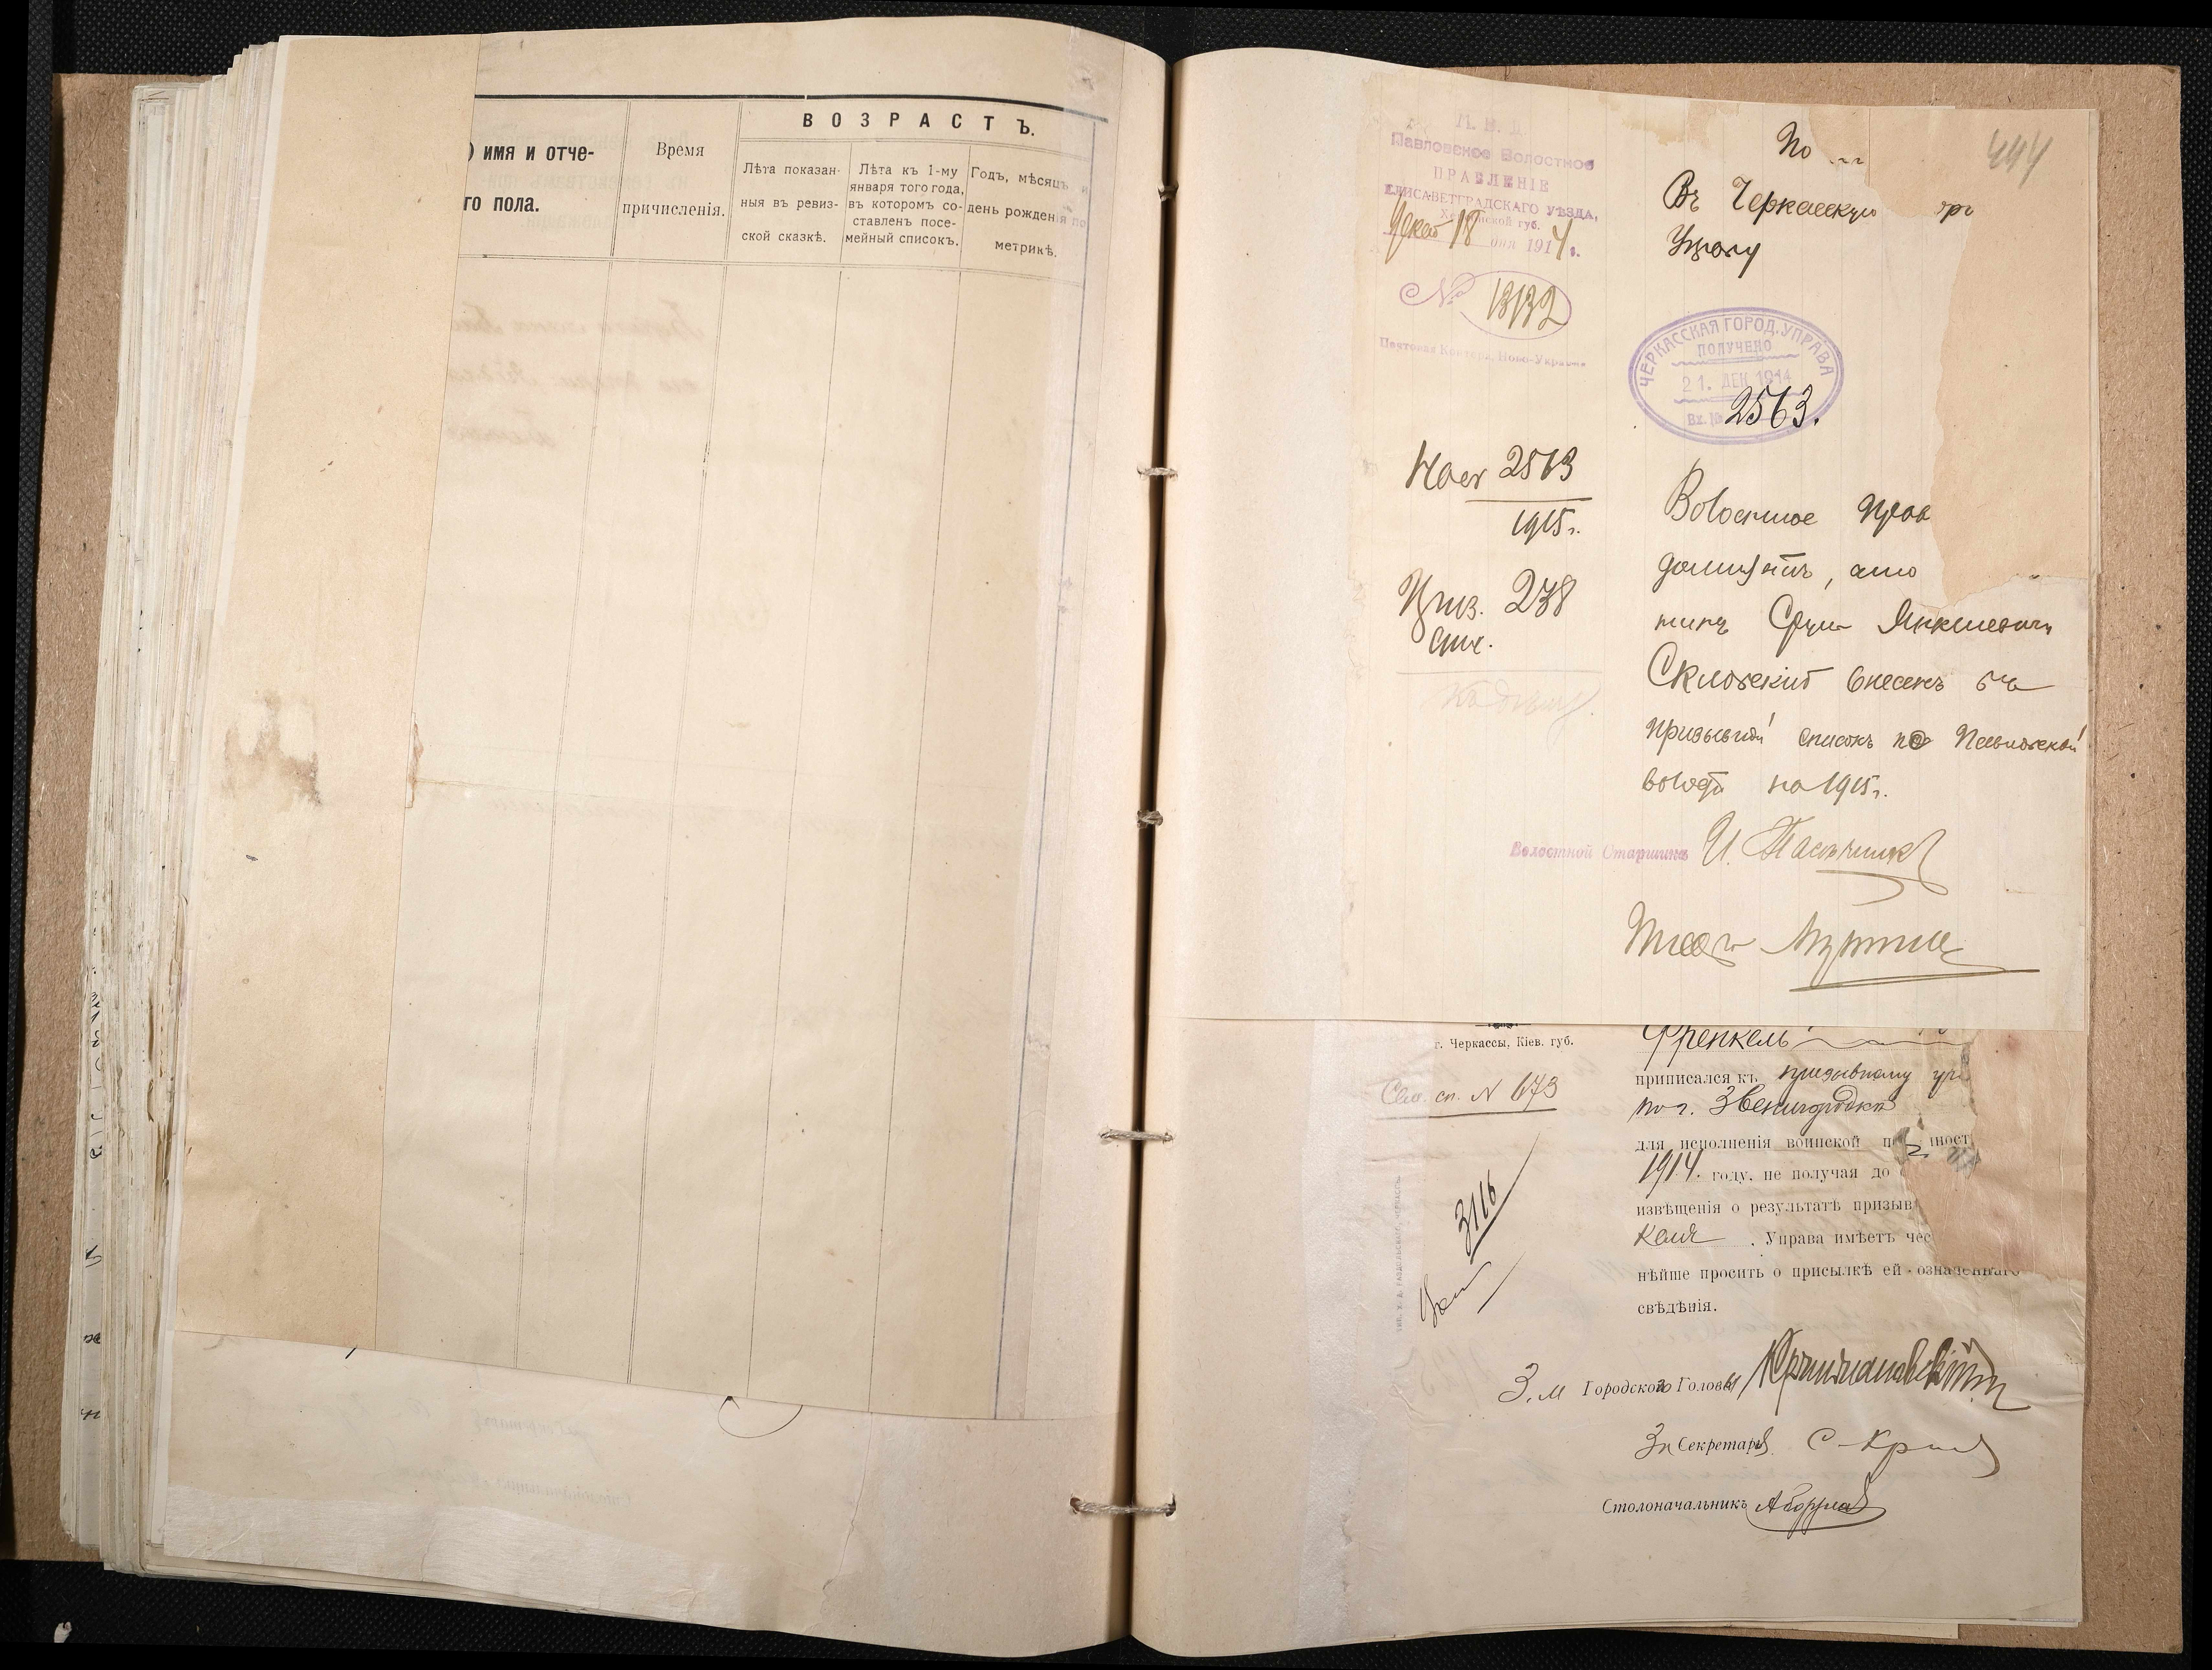 ВОЗРАСТЪ.
) имя и отче-
го пола.
Время
причисленія.
Лѣта показан-
ныя въ ревиз-
ской сказкѣ.
Лѣта къ 1-му
января того года,
въ которомъ со-
ставленъ посе-
мейный списокъ.
Годъ, мѣсяцъ и
день рожденія по
метрикѣ.
444
М. В. Д.
Павловское Волостное
ПРАВЛЕНІЕ
ЕЛИСАВЕТГРАДСКАГО УѢЗДА,
Херсонской губ.
Декаб 18 дня 1914 г.
№ 13132
Почтовая Контора, Ново-Украинка
Въ Черкасскую
Управу
ЧЕРКАССКАЯ ГОРОД. УПРАВА
ПОЛУЧЕНО
21. ДЕК 1914
Вх. № 2563.
2563
1915 г.
Приз. 238
спис.
Волостное Прав
доноситъ, что
Срул Янкелевичъ
Скловскій внесенъ въ
призывной списокъ по Павловской
волости на 1915 г.
Волостной Старшина И. Пасѣчникъ
г. Черкассы, Кіев. губ.
Сем. сп. N 673
3116
Френкель
приписался къ призывному уч
по г. Звенигородка
для исполненія воинской п инност
1914. году, не получая до
извѣщенія о результатѣ призыв
келя . Управа имѣетъ чес
нѣйше просить о присылкѣ ей означеннаго
свѣдѣнія.
З.м Городского Головы
За Секретаря
Столоначальникъ